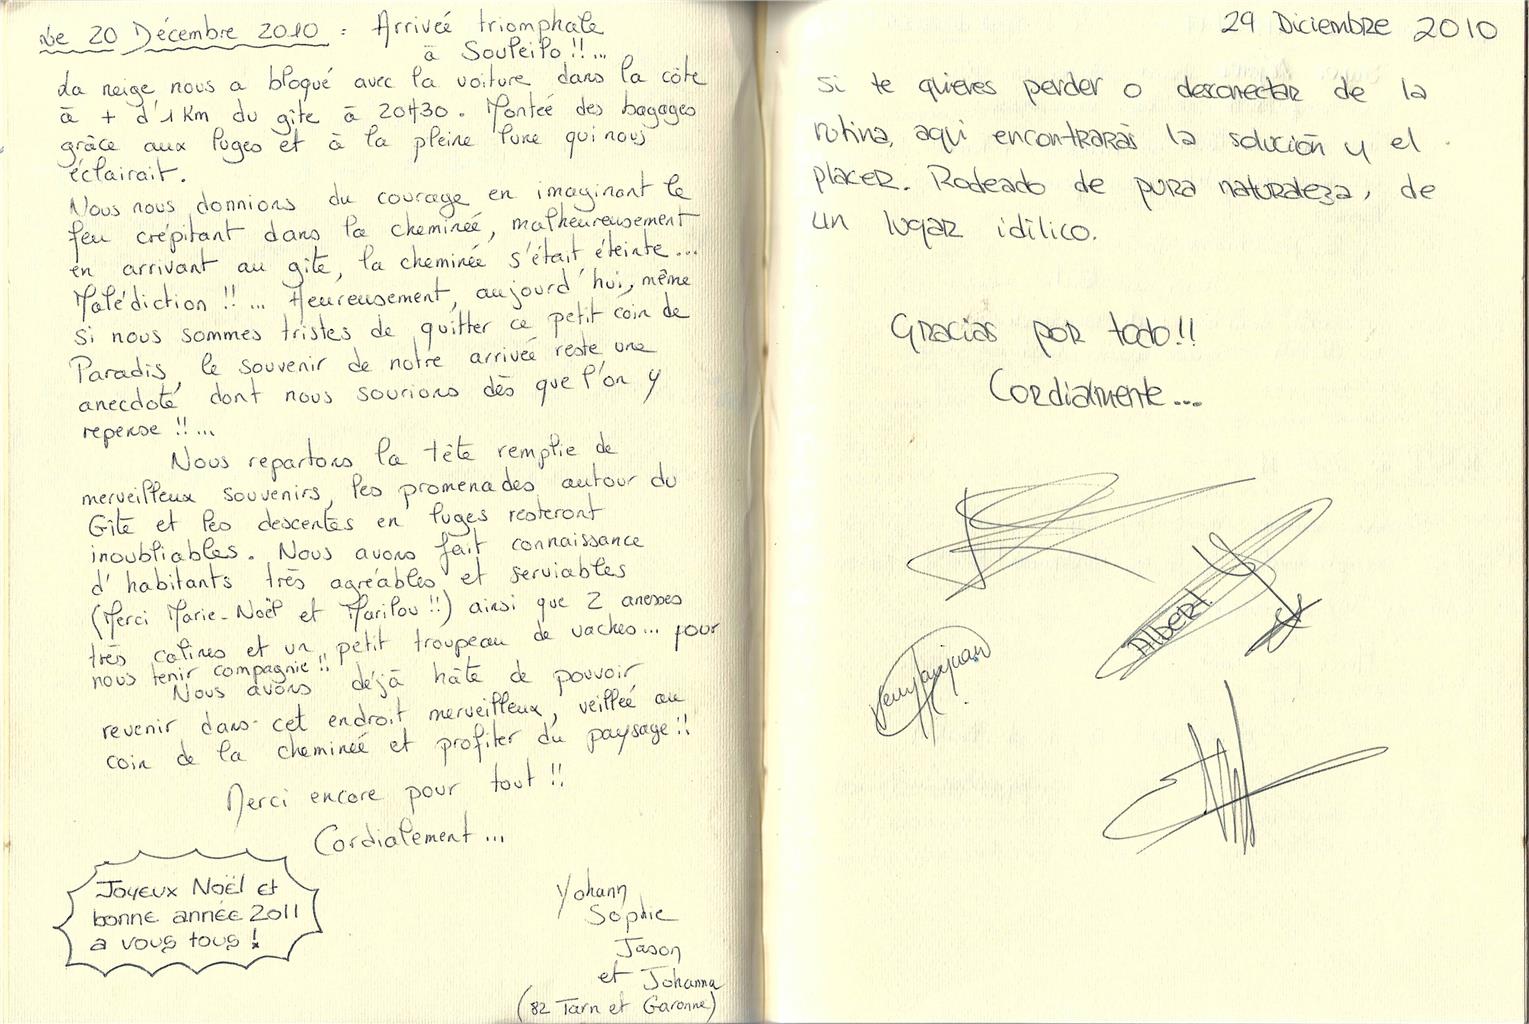 Le 20 Décembre 2010 : Arrivée triomphale
à Souleilo !!...
La neige nous a bloqué avec la voiture dans la côte
à + d'1 Km du gîte à 20H30. Montée des bagages
grâce aux luges et à la pleine lune qui nous
éclairait.
Nous nous donnions du courage en imaginant le
feu crépitant dans la cheminée, malheureusement
en arrivant au gîte, la cheminée s'était éteinte...
Malédiction !!... Heureusement, aujourd'hui, même
si nous sommes tristes de quitter ce petit coin de
Paradis, le souvenir de notre arrivée reste une
anecdote dont nous sourions dès que l'on y
repense !!...
Nous repartons la tête remplie de
merveilleux souvenirs, les promenades autour du
Gîte et les descentes en luges resteront
inoubliables. Nous avons fait connaissance
d'habitants très agréables et serviables
(Merci Marie-Noël et Marilou !!) ainsi que 2 anesses
très calines et un petit troupeau de vaches... pour
nous tenir compagnie !!
Nous avons déjà hâte de pouvoir
revenir dans cet endroit merveilleux, veillée au
coin de la cheminée et profiter du paysage !!
Merci encore pour tout !!
Cordialement...
Joyeux Noël et
bonne année 2011
a vous tous !
Yohann
Sophie
Jason
et Johanna
(82 Tarn et Garonne)
29 Diciembre 2010
Si te quieres perder o desconectar de la
rutina, aqui encontrarás la solución y el
placer. Rodeado de pura naturaleza, de
un lugar idilico.
Gracias por todo!!
Cordialmente...
Albert